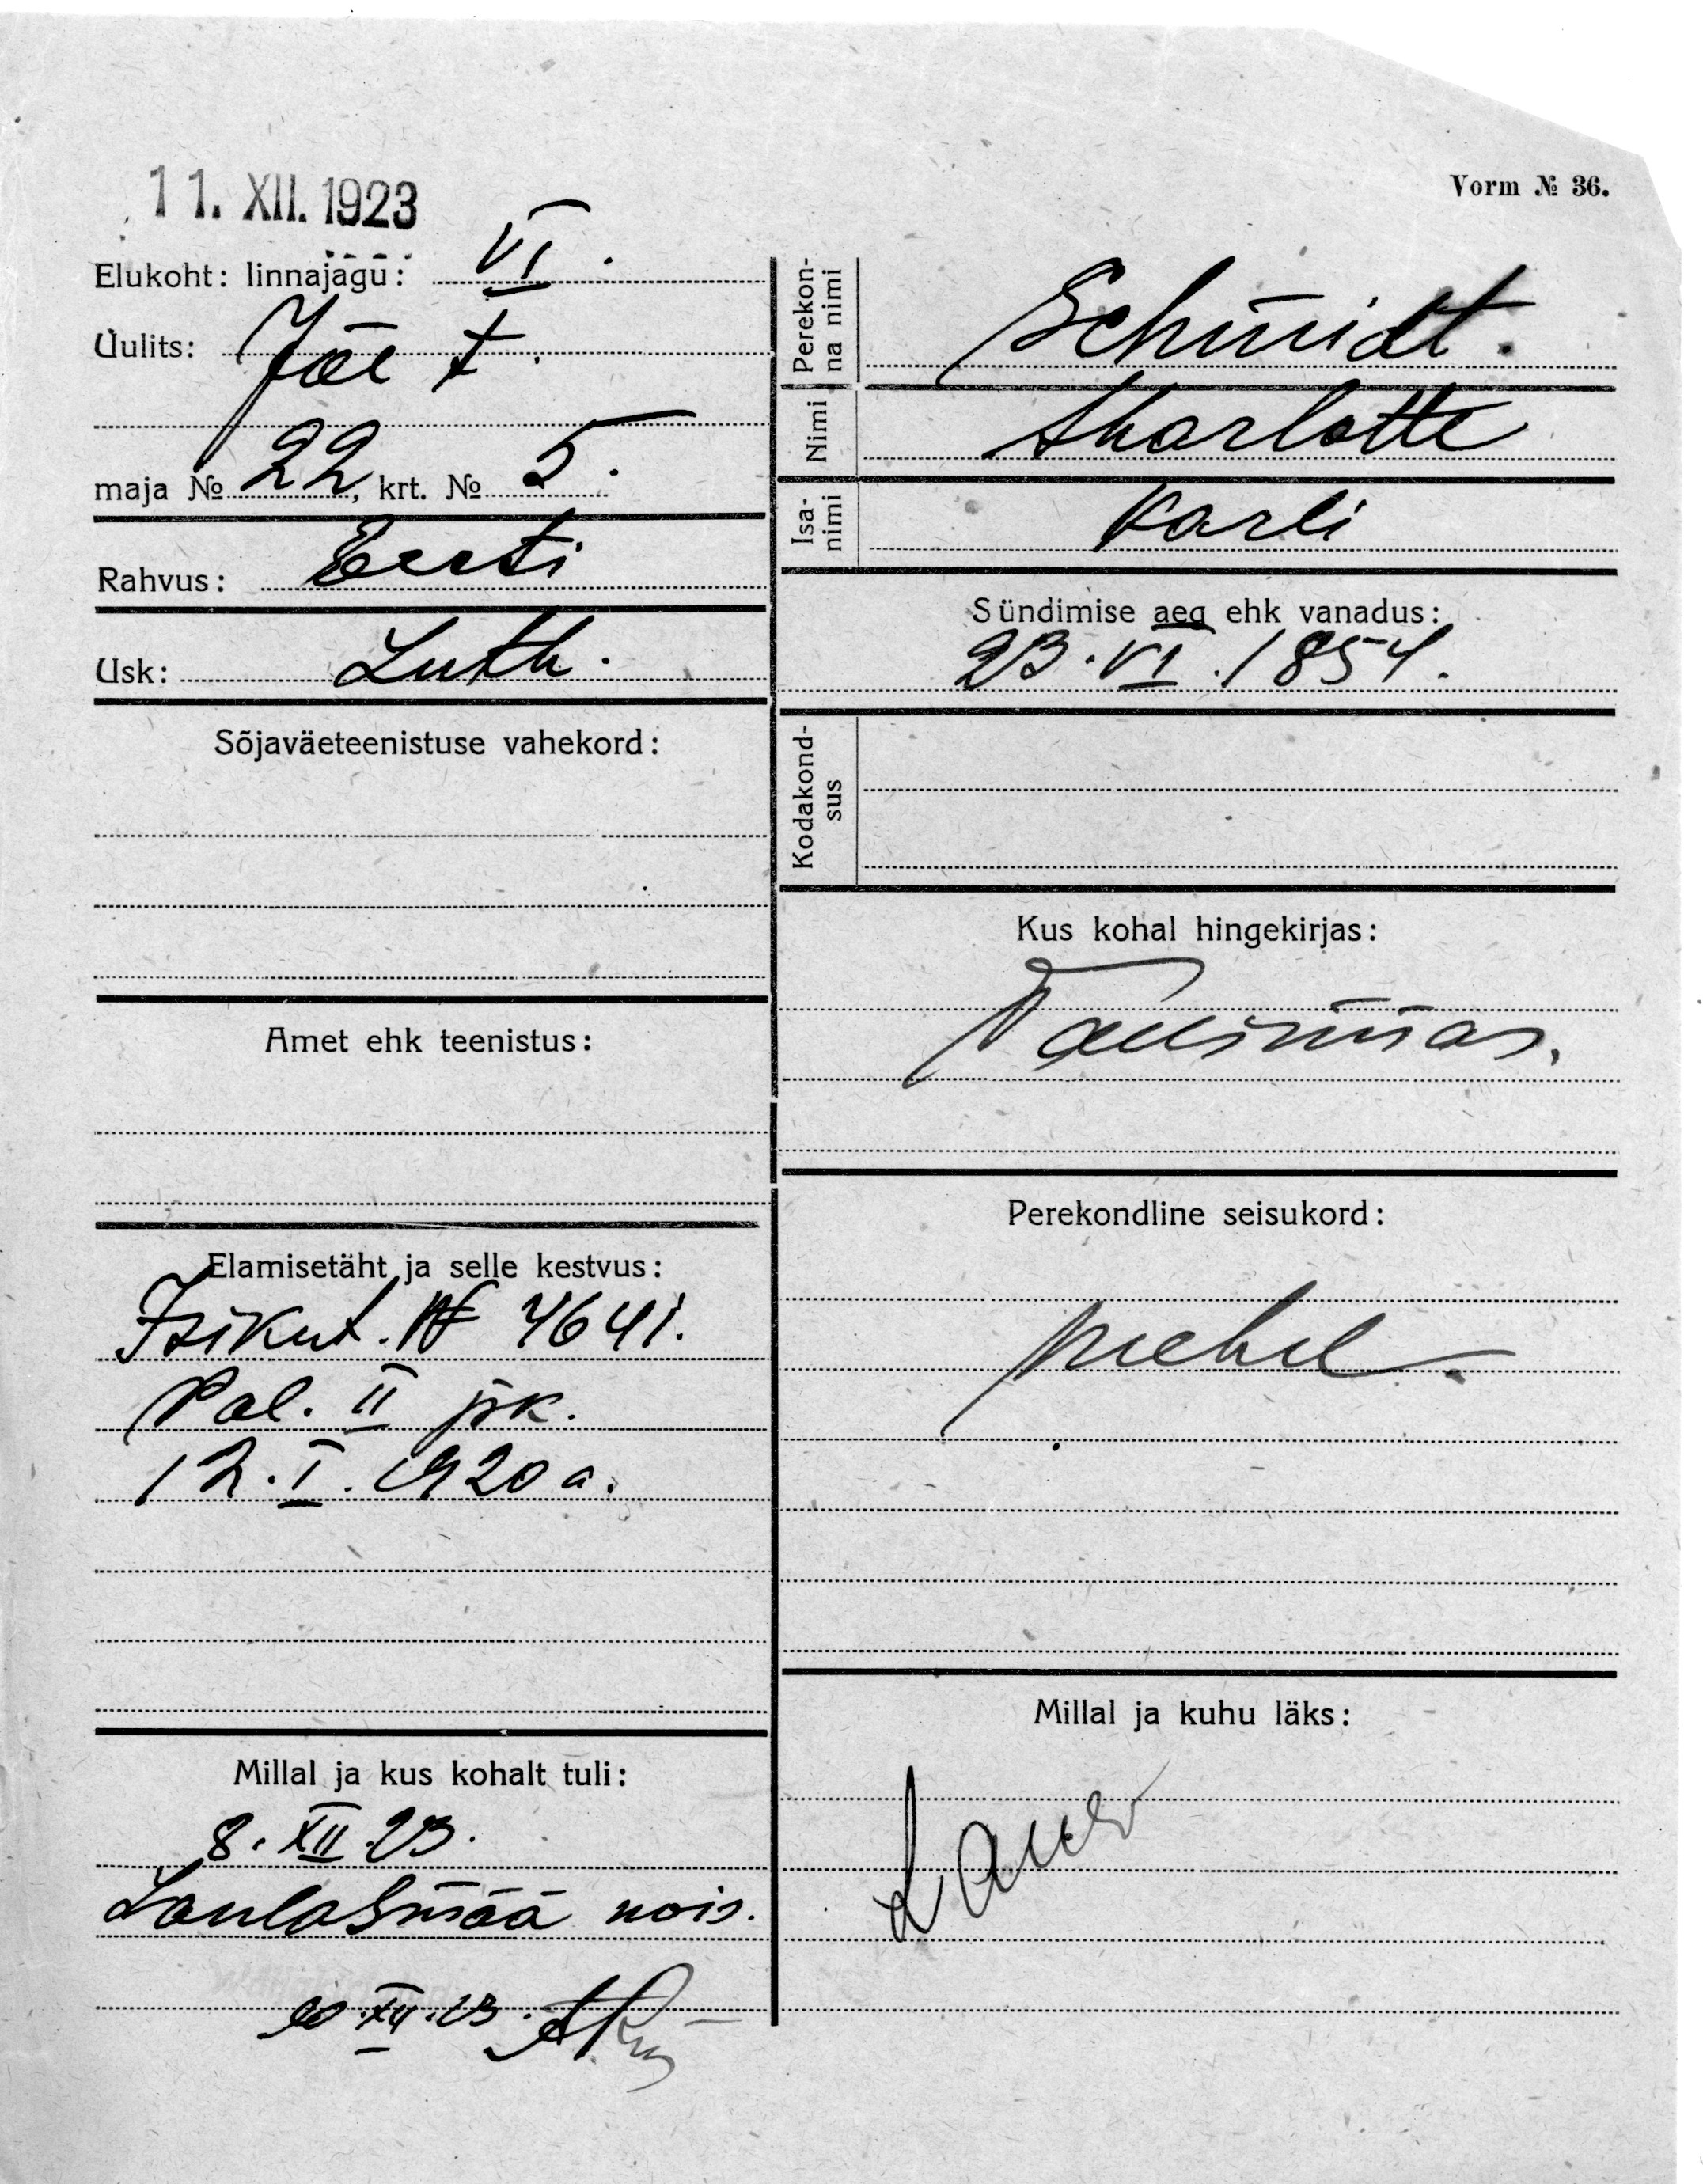 11. XII. 1923
Vorm № 36.
Elukoht: linnajagu: VI.
Uulits: Jõe t.
maja № 22, krt. № 5.
Rahvus: Eesti
Usk: Luth.
Sõjaväeteenistuse vahekord:
Amet ehk teenistus:
Elamisetäht ja selle kestvus:
Isikut. № 4641.
Pol. II jsk.
12. I. 1920 a.
Millal ja kus kohalt tuli:
8. XII 23.
Laulasmää mois.
10. XII. 23.
Perekonna nimi
Schmidt.
Nimi
Sharlotte
Isanimi
Karli
Sündimise aeg ehk vanadus:
23. VI. 1854.
Kodakondsus
Kus kohal hingekirjas:
Tallinnas.
Perekondline seisukord:
mehel
Millal ja kuhu läks: